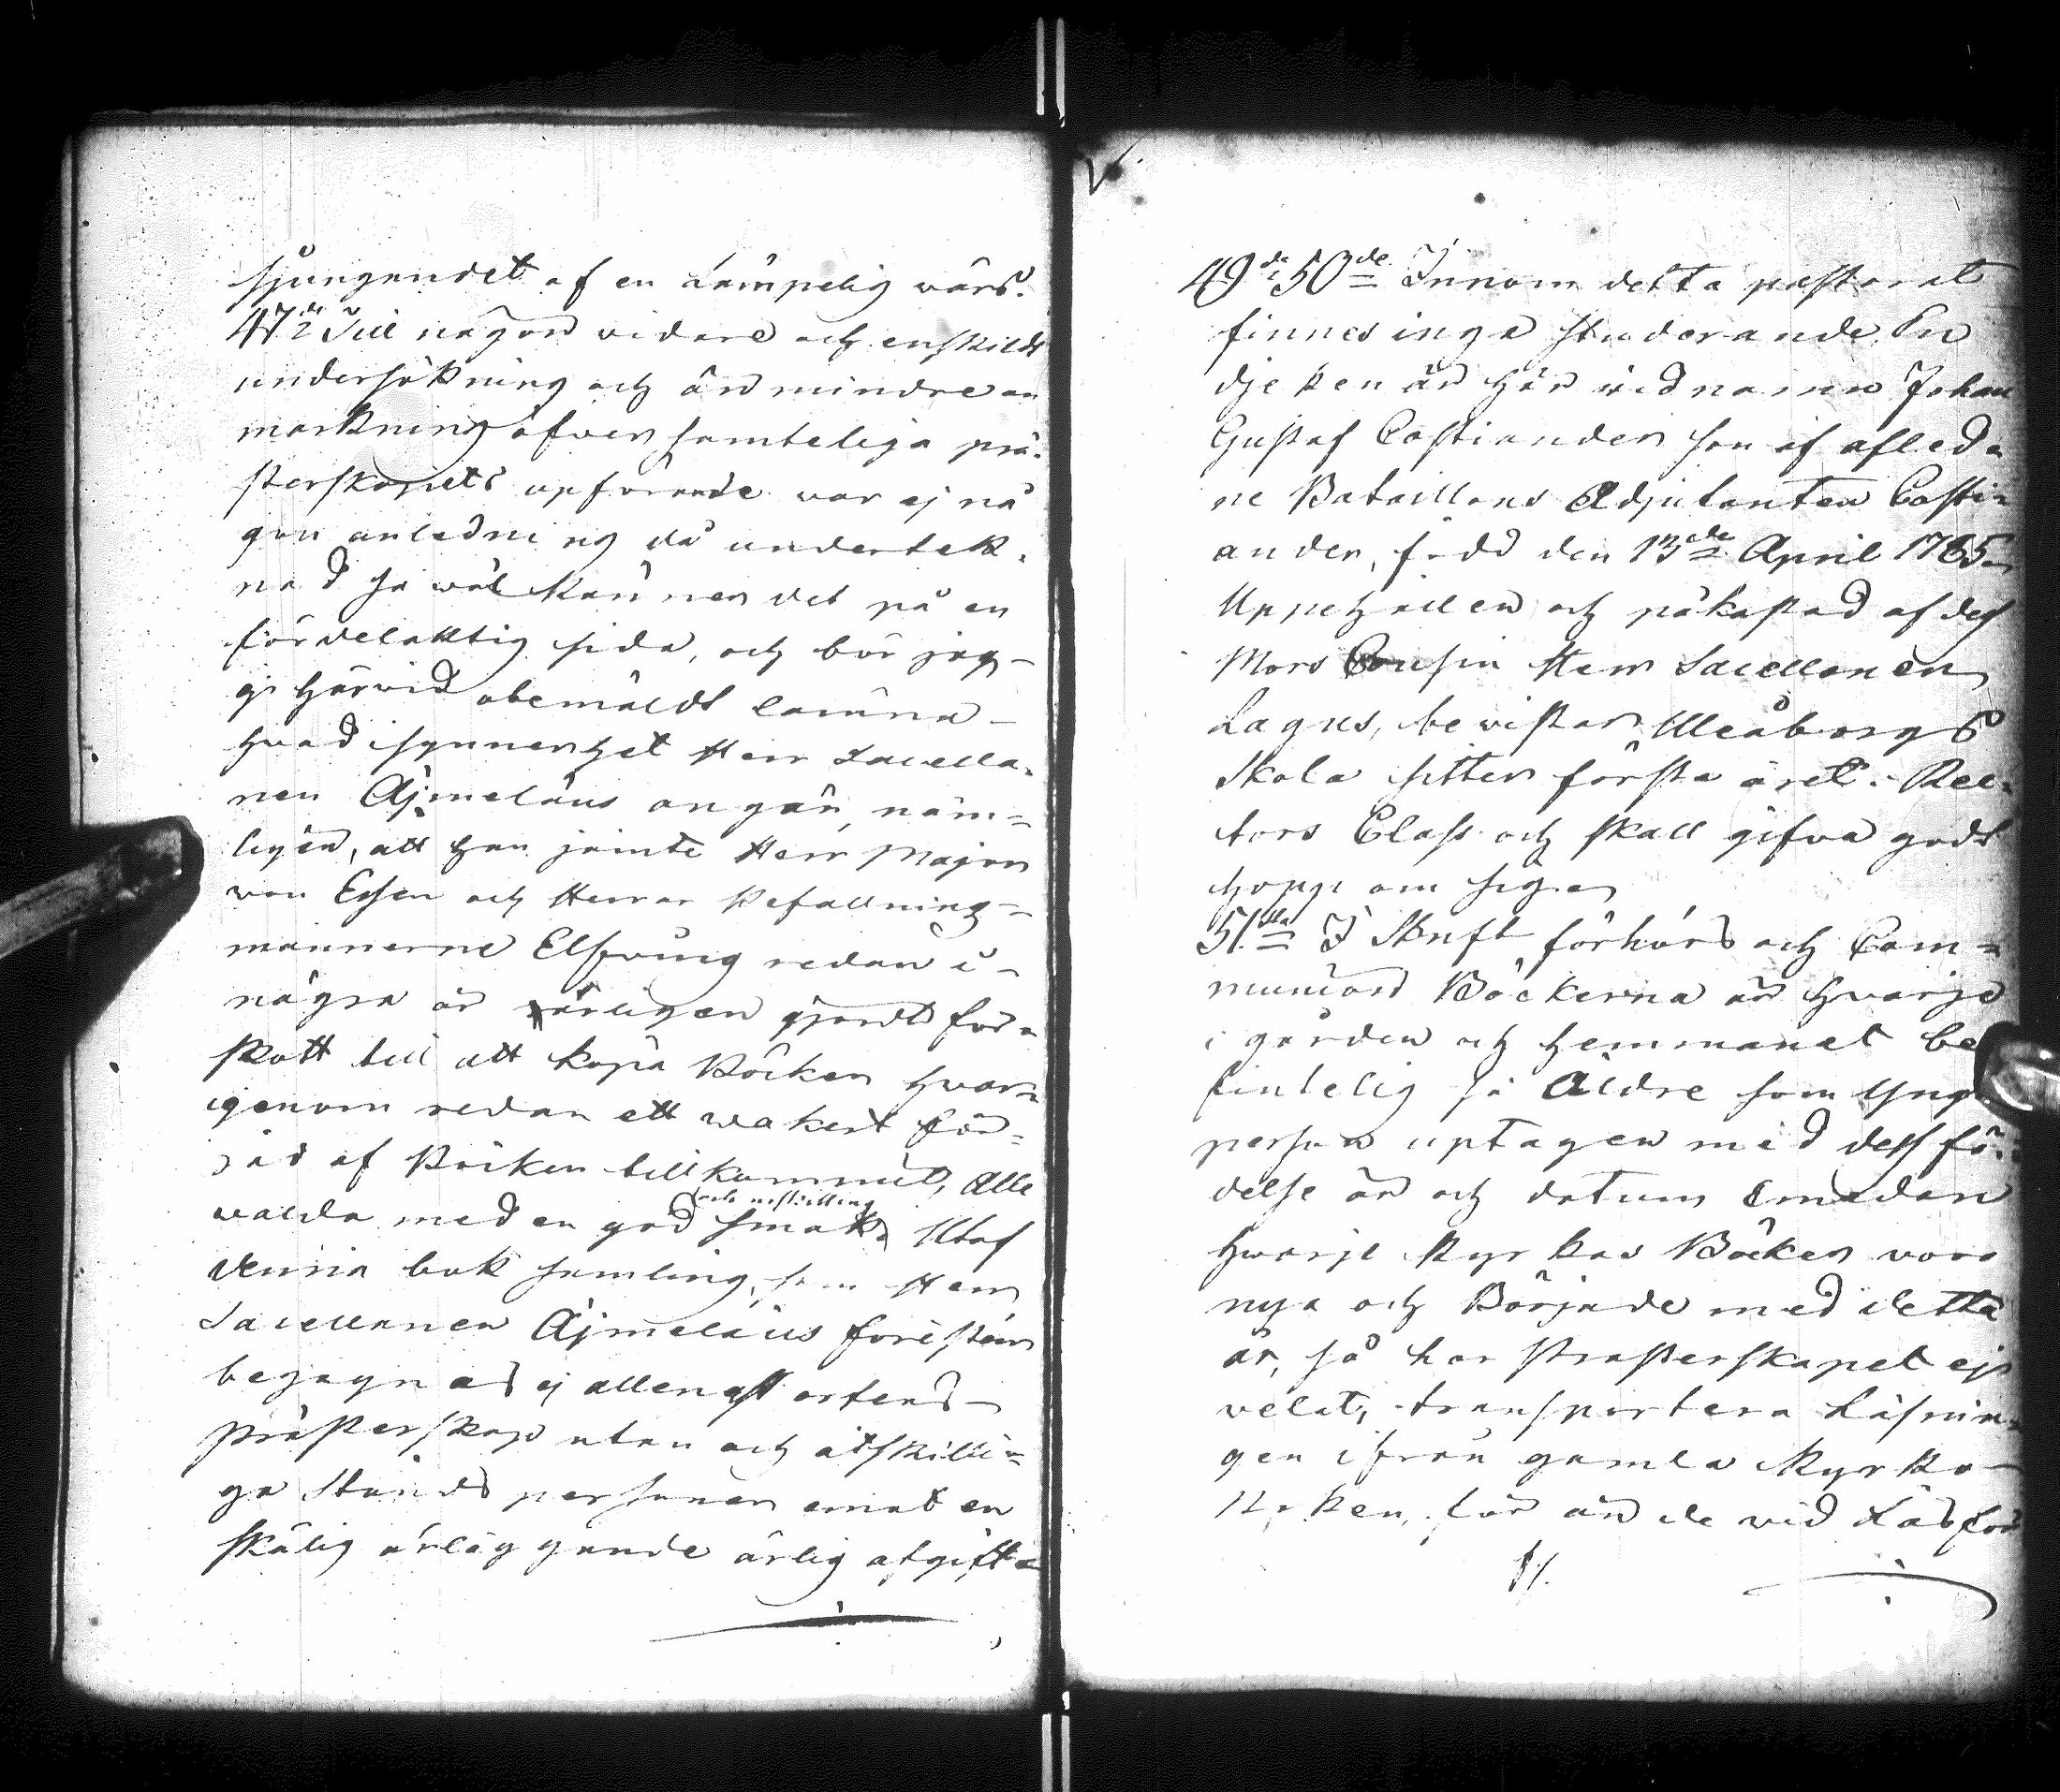 sjungandet af en lämpelig värs.
47de Till någon vidare och enskildt
undersökning och än mindre an
märkning öfver samteliga prä-
sterskapets upförande var ej nå
gon anledning då undertek-
nad så wäl känner det på en
fördelaktig sida, och bör jag
ej härvid obemäldt lämna
hvad isynnerhet Herr Sacella-
nen Ajmelæus angår, näm-
ligen, att han jämte Herr Major
von Essen och Herrar Befallnings-
männerne Elfving redan i
några år årligen gjordt för-
skott till att köpa Böcker hvar-
igenom redan ett wakert för-
råd af Böcker tillkommit, Alla
valda med en god smak Utaf
denna bok samling, som Herr
Sacellanen Ajmelæus förestår
begagnas ej allenast ortens
Prästerskap utan och åtskilli-
ga Stånds personer emot en
skälig ärläggande årlig afgift
49de 50de Innom detta pastorat
finnes inga studerande. En
djeken är här vid namn Johan
Gustaf Costiander son af afled-
ne Bataillons Adjutanten Costi-
ander, född den 13de April 1785
Uppehållen och påkostad af dess
Mors Cousin Herr Sacellanen
Lagus, bevistar Uleåborgs
Skola sitter första året i Rec-
tors Class och skall gifva godt
hopp om sig
51sta I Skrift förhörs och Com-
munions Böckerna är hvarje
i gården och hemmanet be
fintelig så Äldre som Yngre
person uptagen med dess fö-
delse år och datum Emedan
hvarje kyrkas Böcker voro
nya och Började med detta
år, så har Prästerskapet ej
velat, transportera Läsnin-
gen ifrån gamla Kyrko-
Boken, för än de vid Läsför